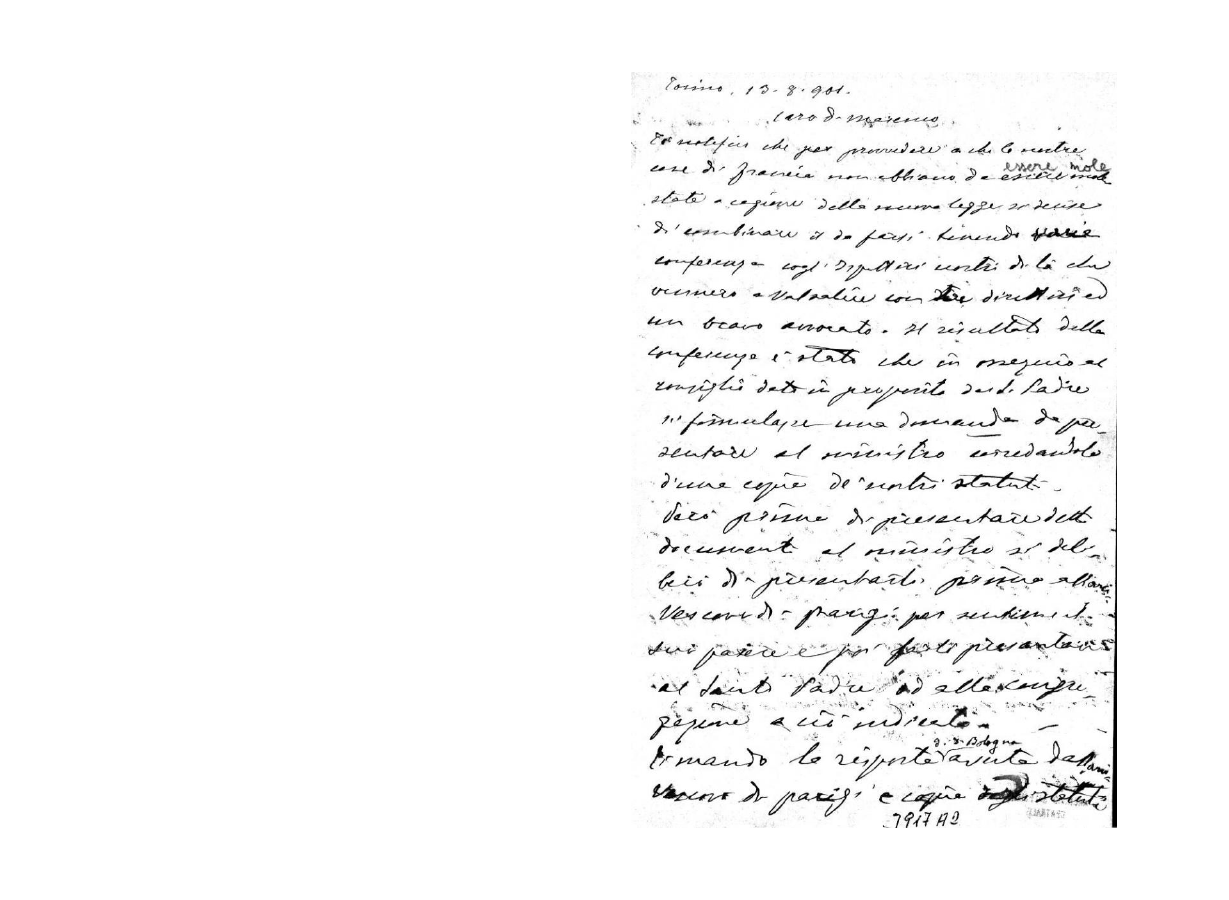 Torino, 13-8-901.
Caro d. Marenco
Ti notifico che per provvedere a che le nostre
case di Francia non abbiano da essere mole
essere mole
state a cagione della nuova legge si decise
di combinare il da farsi tenendo varie
conferenze cogl'Ispettori nostri di là che
vennero a Valsalice con tre direttori ed
un bravo avvocato. Il risultato della
conferenza è stato che in ossequio al
consiglio dato in proposito dal S. Padre
si formulasse una domanda da pre-
sentare al ministro corredandola
d'una copia de' nostri statuti.
Però prima di presentare detti
documenti al ministro si deli-
berò di presentarli prima all'Arci-
vescovo di Parigi per sentirne il
suo parere e poi farli presentare
al Santo Padre od alla congre-
gazione a ciò indicata.
Ti mando la risposta avuta dall'Arci-
d. d. Bologna
vescovo di Parigi e copia degli statuti
7917 A2